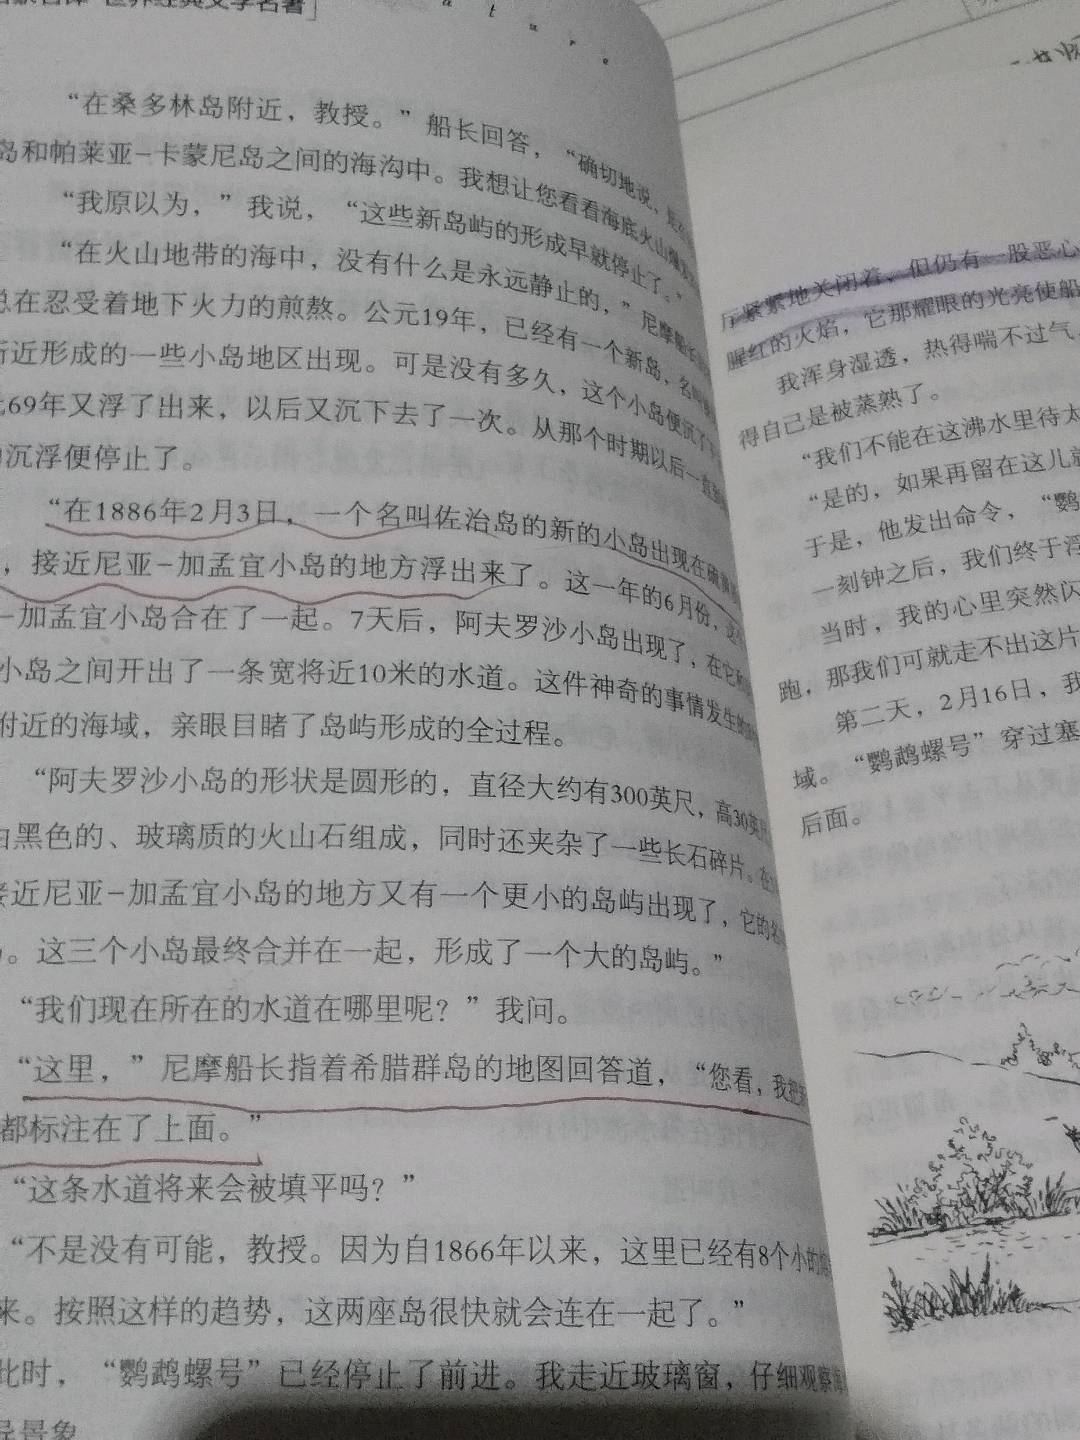 世界经典文学名著
a t u r e
“在桑多林岛附近，教授。”船长回答，“确切地说，是在
岛和帕莱亚-卡蒙尼岛之间的海沟中。我想让您看看海底火山
“我原以为，”我说，“这些新岛屿的形成早就停止了。”
“在火山地带的海中，没有什么是永远静止的，”尼摩船长
总在忍受着地下火力的煎熬。公元19年，已经有一个新岛，名叫
近形成的一些小岛地区出现。可是没有多久，这个小岛便沉了下
69年又浮了出来，以后又沉下去了一次。从那个时期以后一直
沉浮便停止了。
“在1886年2月3日，一个名叫佐治岛的新的小岛出现在硫黄
，接近尼亚-加孟宜小岛的地方浮出来了。这一年的6月份，
-加孟宜小岛合在了一起。7天后，阿夫罗沙小岛出现了，在它和
小岛之间开出了一条宽将近10米的水道。这件神奇的事情发生的
附近的海域，亲眼目睹了岛屿形成的全过程。
“阿夫罗沙小岛的形状是圆形的，直径大约有300英尺，高30英尺
由黑色的、玻璃质的火山石组成，同时还夹杂了一些长石碎片。在
接近尼亚-加孟宜小岛的地方又有一个更小的岛屿出现了，它的名
。这三个小岛最终合并在一起，形成了一个大的岛屿。”
“我们现在所在的水道在哪里呢？”我问。
“这里，”尼摩船长指着希腊群岛的地图回答道，“您看，我把
都标注在了上面。”
“这条水道将来会被填平吗？”
“不是没有可能，教授。因为自1866年以来，这里已经有8个小的
来。按照这样的趋势，这两座岛很快就会连在一起了。”
此时，“鹦鹉螺号”已经停止了前进。我走近玻璃窗，仔细观察
异景象
厅紧紧地关闭着，但仍有一股恶心
腥红的火焰，它那耀眼的光亮使船
我浑身湿透，热得喘不过气
得自己是被蒸熟了。
“我们不能在这沸水里待太
“是的，如果再留在这儿就
于是，他发出命令，“鹦
一刻钟之后，我们终于浮
当时，我的心里突然闪
跑，那我们可就走不出这片
第二天，2月16日，我
域。“鹦鹉螺号”穿过塞
后面。